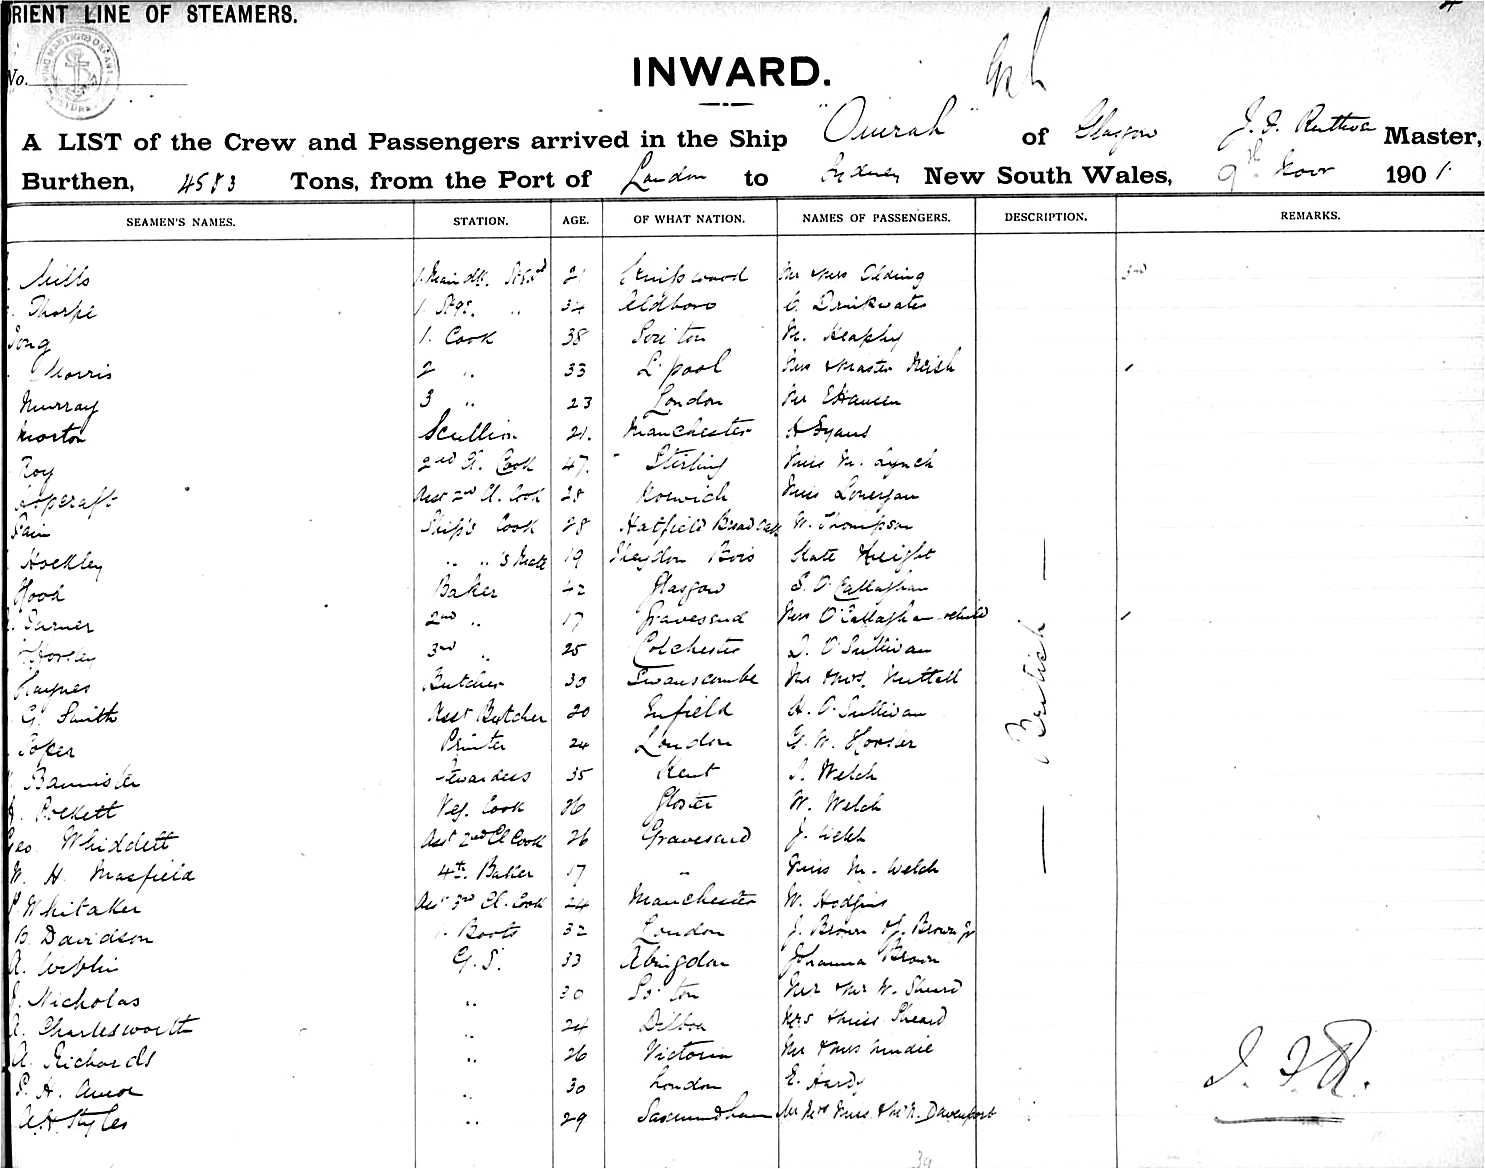 ORIENT LINE OF STEAMERS.
No.
INWARD.
A LIST of the Crew and Passengers arrived in the Ship "Omrah" of Glasgow J. F. Ruthven Master,
Burthen, 4583 Tons, from the Port of London to Sydney New South Wales, 9th Novr 1901.
SEAMEN'S NAMES. STATION. AGE. OF WHAT NATION. NAMES OF PASSENGERS. DESCRIPTION. REMARKS.
Mills 21 Mr & Mrs Olding 3rd
Thorpe 34 Aldboro C. Drinkwater
Tong 1. Cook 38 So'ton M. Heaphy
Morris 2 " 33 L'pool Mrs & Master
Murray 3 " 23 London Mr E Hansen
Morton Scullion 21. Manchester A Lyans
Roy 2nd Cl. Cook 47. Stirling Miss M. Lynch
Asst 2nd Cl. Cook 28 Norwich Miss Lonergan
Pain Ship's Cook 28 Hatfield Broad Oak W. Thompson
Hockley " " 's Mate 19 Theydon Bois Kate Height
Hood Baker 42 Glasgow E. O'Callaghan
Turner 2nd " 17 Gravesend Mrs O'Callaghan & child
Horsley 3rd " 25 Colchester D. O'Sullivan
Haynes Butcher 30 Swanscombe Mr & Mrs. Nuttall
G. Smith Asst Butcher 20 Enfield H. O'Sullivan
Coker Printer 24 London G. W. Hooser
Bannister Stewardess 35 Kent Welch
Pockett Veg. Cook 26 Gloster W. Welch
Geo. Whiddett Asst 2nd Cl Cook 26 Gravesend J. Welch
W. H. Masfield 4th. Baker 17 " Miss M. Welch
Whitaker Asst 3rd Cl. Cook 24 Manchester W. Hodgins
B. Davidson Boots 32 London J. Brown & J. Brown Jr
A. G. S. 33 Abingdon Johanna Brown
J. Nicholas " 30 So'ton Mr & Mr W. Sheard
A. Charlesworth " 24 Mrs & Miss Sheard
A. Richards " 26 Victoria Mr & Mrs Mudie
P. H. Amor " 30 London E. Hardy
A. H Styles " 29 Saxmundham Mr Mrs Miss & Mr N. Davenport
British
J. F. R.
34